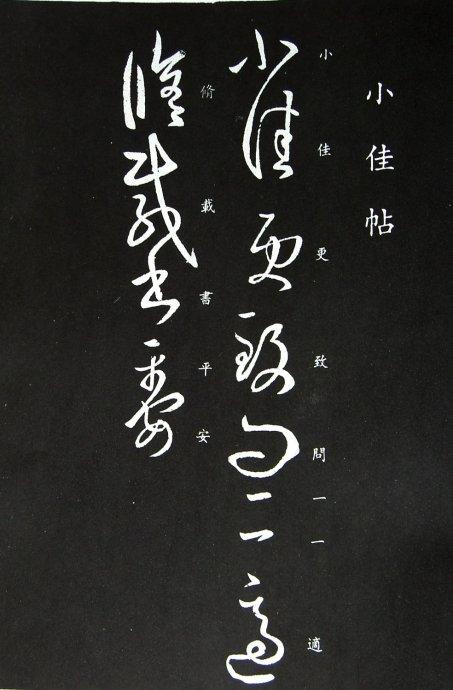 小佳帖
小佳更致問一一適
小佳更致問一一適
脩載書平安
脩載書平安